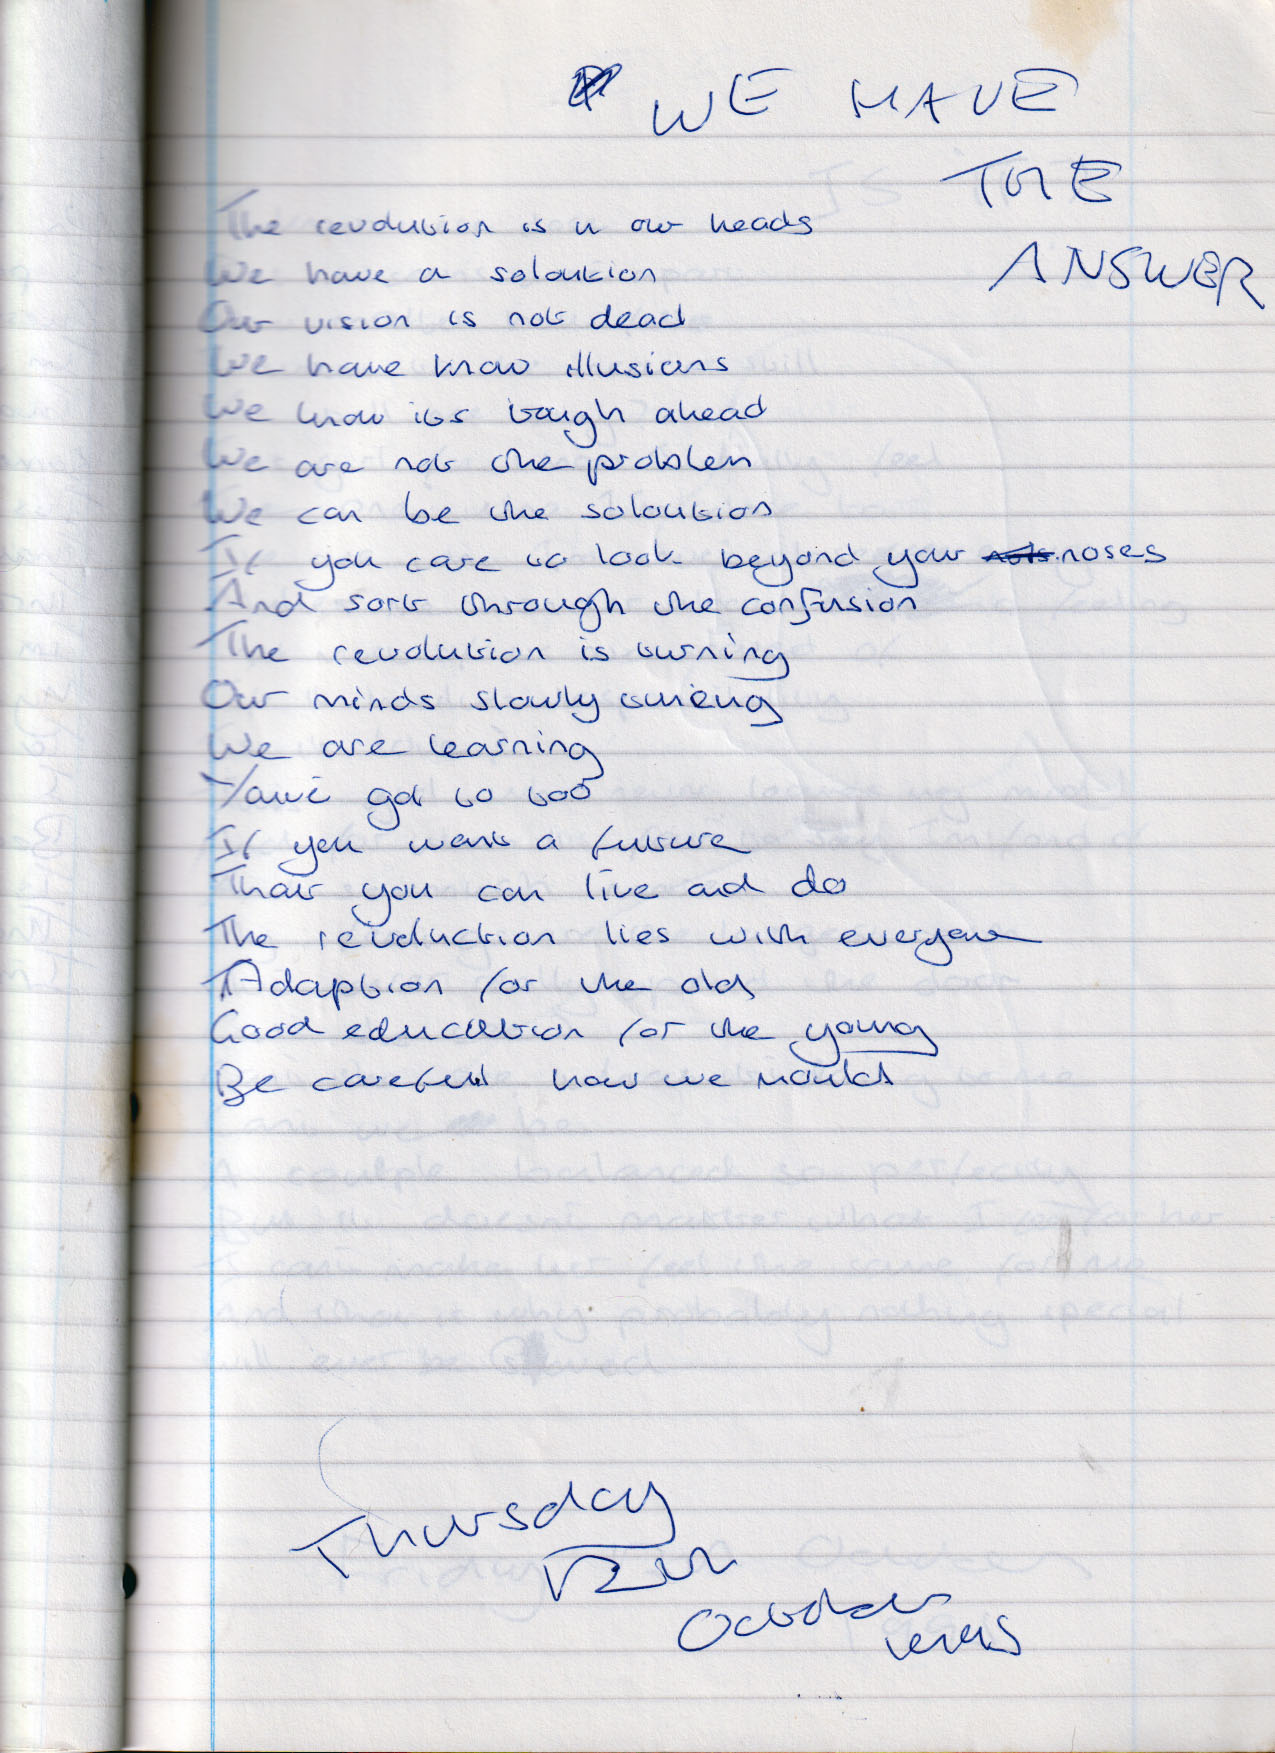 WE HAVE
THE
ANSWER
The revolution is in our heads
We have a soloution
Our vision is not dead
We have know illusions
We know its tough ahead
We are not the problem
We can be the soloution
If you care to look beyond your noses
And sort through the confusion
The revolution is turning
Our minds slowly
We are learning
You've got to too
If you want a future
That you can live and do
The revoluction lies with everyone
Adaption for the old
Good education for the young
Be careful how we mould
Thursday
October